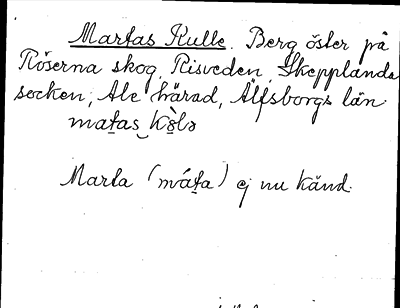 Martas Kulle. Berg öster på
Röserna skog, Risveden, Skepplanda
socken, Ale härad, Älfsborgs län
Marta (máta) ej nu känd.